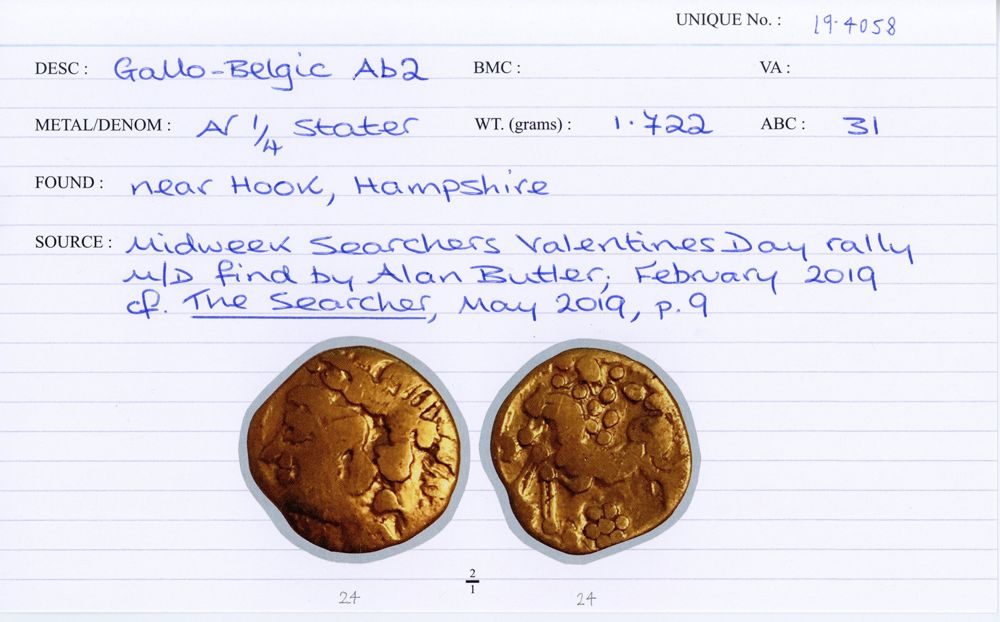 UNIQUE No. : 19.4058
DESC : Gallo-Belgic Ab2 BMC : VA :
METAL/DENOM : AV 1/4 stater WT. (grams) : 1.722 ABC : 31
FOUND : near Hook, Hampshire
SOURCE : Midweek Searchers Valentines Day rally
M/D find by Alan Butler, February 2019
cf. The Searcher, May 2019, p.9
2/1
24 24